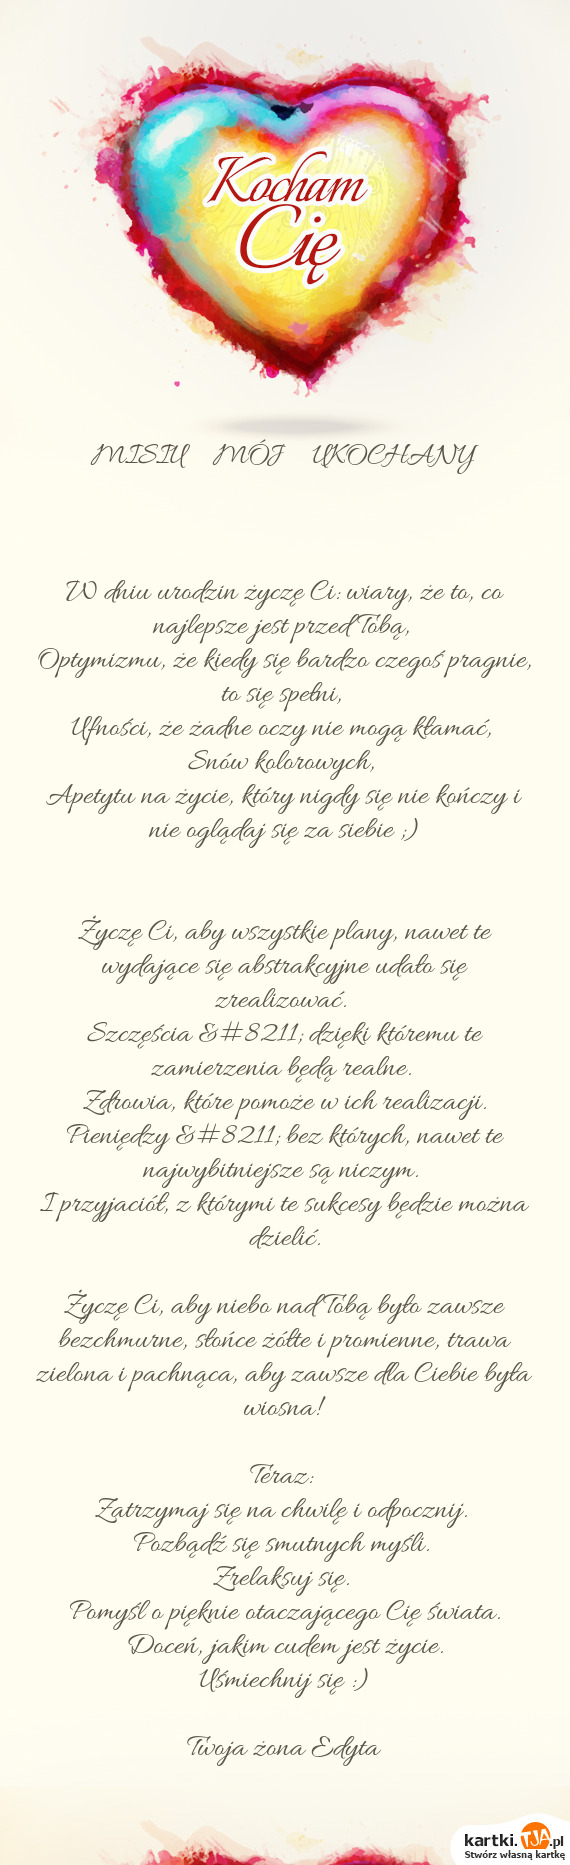 Kocham
Cię
MISIU MÓJ UKOCHANY
W dniu urodzin życzę Ci: wiary, że to, co
najlepsze jest przed Tobą,
Optymizmu, że kiedy się bardzo czegoś pragnie,
to się spełni,
Ufności, że żadne oczy nie mogą kłamać,
Snów kolorowych,
Apetytu na życie, który nigdy się nie kończy i
nie oglądaj się za siebie ;)
Życzę Ci, aby wszystkie plany, nawet te
wydające się abstrakcyjne udało się
zrealizować.
Szczęścia &#8211; dzięki któremu te
zamierzenia będą realne.
Zdrowia, które pomoże w ich realizacji.
Pieniędzy &#8211; bez których, nawet te
najwybitniejsze są niczym.
I przyjaciół, z którymi te sukcesy będzie można
dzielić.
Życzę Ci, aby niebo nad Tobą było zawsze
bezchmurne, słońce żółte i promienne, trawa
zielona i pachnąca, aby zawsze dla Ciebie była
wiosna!
Teraz:
Zatrzymaj się na chwilę i odpocznij.
Pozbądź się smutnych myśli.
Zrelaksuj się.
Pomyśl o pięknie otaczającego Cię świata.
Doceń, jakim cudem jest życie.
Uśmiechnij się :)
Twoja żona Edyta
kartki.TJA.pl
Stwórz własną kartkę